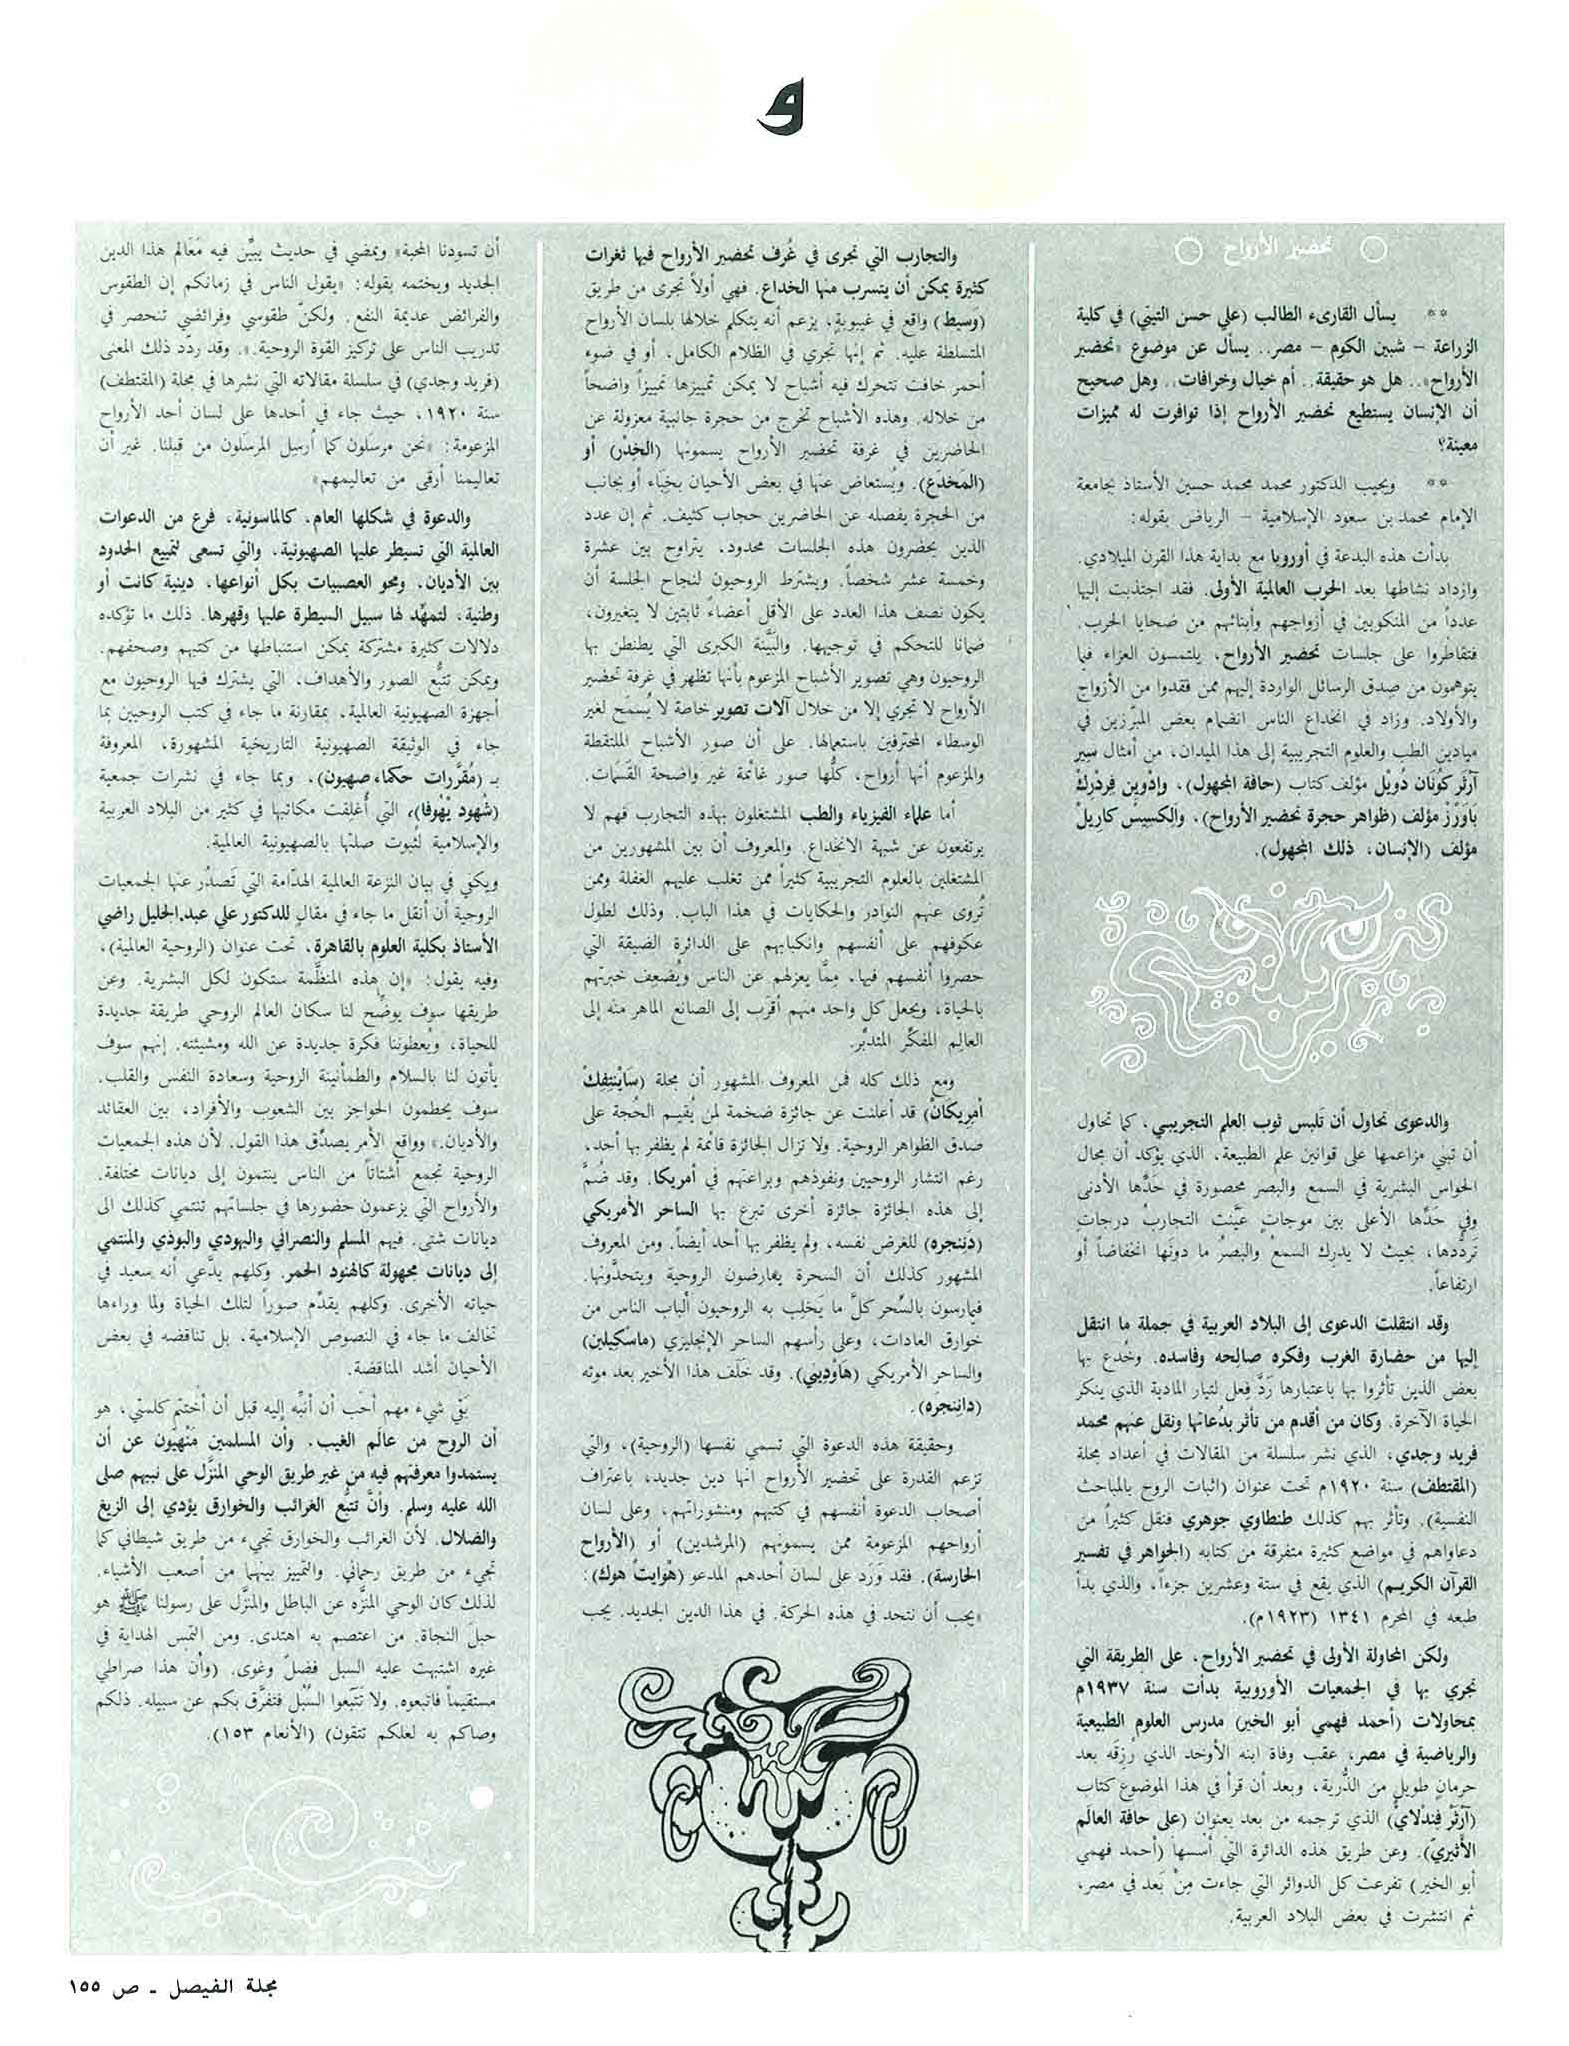 و
تحضير الأرواح
** يسأل القارىء الطالب (علي حسن التيتي) في كلية
الزراعة - شبين الكوم - مصر.. يسأل عن موضوع «تحضير
الأرواح».. هل هو حقيقة.. أم خيال وخرافات.. وهل صحيح
أن الإنسان يستطيع تحضير الأرواح إذا توافرت له مميزات
معينة؟
** ويجيب الدكتور محمد محمد حسين الأستاذ بجامعة
الإمام محمد بن سعود الإسلامية - الرياض بقوله:
بدأت هذه البدعة في أوروبا مع بداية هذا القرن الميلادي.
وازداد نشاطها بعد الحرب العالمية الأولى. فقد اجتذبت إليها
عدداً من المنكوبين في أزواجهم وأبنائهم من ضحايا الحرب.
فتقاطروا على جلسات تحضير الأرواح، يلتمسون العزاء فيما
يتوهمون من صدق الرسائل الواردة إليهم ممن فقدوا من الأزواج
والأولاد. وزاد في انخداع الناس انضمام بعض المبرّزين في
ميادين الطب والعلوم التجريبية إلى هذا الميدان، من أمثال سير
آرْثَر كُونَان دُويْل مؤلف كتاب (حافة المجهول)، وإدْوين فِرِدْرِكْ
بَاوَرْزْ مؤلف (ظواهر حجرة تحضير الأرواح)، وأَلِكْسِيْس كَارِيلْ
مؤلف (الإنسان، ذلك المجهول).
والدعوى تحاول أن تَلبس ثوب العلم التجريبي، كما تحاول
أن تبني مزاعمها على قوانين علم الطبيعة، الذي يؤكد أن مجال
الحواس البشرية في السمع والبصر محصورة في حَدِّها الأدنى
وفي حَدِّها الأعلى بين موجاتٍ عَيَّنت التجاربُ درجاتِ
تَردُّدها، بحيث لا يدرِك السمعُ والبصرُ ما دونَها انخفاضاً أو
ارتفاعاً.
وقد انتقلت الدعوى إلى البلاد العربية في جملة ما انتقل
إليها من حضارة الغرب وفكره صالحِه وفاسده. وخُدع بها
بعض الذين تأثروا بها باعتبارها رَدَّ فِعل لتيار المادية الذي ينكر
الحياة الآخرة. وكان من أقدم من تأثر بدُعاتها ونقل عنهم محمد
فريد وجدي، الذي نشر سلسلة من المقالات في أعداد مجلة
(المقتطف) سنة ١٩٢٠م تحت عنوان (اثبات الروح بالمباحث
النفسية). وتأثر بهم كذلك طنطاوي جوهري فنقل كثيراً من
دعاواهم في مواضع كثيرة متفرقة من كتابه (الجواهر في تفسير
القرآن الكريم) الذي يقع في ستة وعشرين جزءاً، والذي بدأ
طبعه في المحرم ١٣٤١ (١٩٢٣م).
ولكن المحاولة الأولى في تحضير الأرواح، على الطريقة التي
تجري بها في الجمعيات الأوروبية بدأت سنة ١٩٣٧م
بمحاولات (أحمد فهمي أبو الخير) مدرس العلوم الطبيعية
والرياضية في مصر، عقب وفاة ابنه الأوحد الذي رُزِقَه بعد
حرمانٍ طويل من الذُّرية، وبعد أن قرأ في هذا الموضوع كتاب
(آرْثَرْ فِندْلَايْ) الذي ترجمه من بعد بعنوان (على حافة العالَم
الأثيري). وعن طريق هذه الدائرة التي أسّسها (أحمد فهمي
أبو الخير) تفرعت كل الدوائر التي جاءت مِنْ بَعد في مصر،
ثم انتشرت في بعض البلاد العربية.
والتجارب التي تجرى في غُرف تحضير الأرواح فيها ثغرات
كثيرة يمكن أن يتسرب منها الخداع. فهي أولاً تجرى من طريق
(وسيط) واقع في غيبوبةٍ، يزعم أنه يتكلم خلالها بلسان الأرواح
المتسلطة عليه. ثم إنها تجري في الظلام الكامل، أو في ضوء
أحمر خافت تتحرك فيه أشباح لا يمكن تمييزها تمييزاً واضحاً
من خلاله. وهذه الأشباح تخرج من حجرة جانبية معزولة عن
الحاضرين في غرفة تحضير الأرواح يسمونها (الخدْر) أو
(المَخدَع). ويُستعاض عنها في بعض الأحيان بخِبَاء أو بجانب
من الحجرة يفصله عن الحاضرين حجاب كثيف. ثم إن عدد
الذين يحضرون هذه الجلسات محدود، يتراوح بين عشرة
وخمسة عشر شخصاً. ويشترط الروحيون لنجاح الجلسة أن
يكون نصف هذا العدد على الأقل أعضاءً ثابتين لا يتغيرون،
ضمانا للتحكم في توجيهها. والبَيِّنة الكبرى التي يطنطن بها
الروحيون وهي تصوير الأشباح المزعوم بأنها تظهر في غرفة تحضير
الأرواح لا تجري إلا من خلال آلات تصوير خاصة لا يُسمح لغير
الوسطاء المحترفين باستعمالها. على أن صور الأشباح الملتقطة
والمزعوم أنها أرواح، كلُّها صور غائمة غير واضحة القَسَمات.
أما علماء الفيزياء والطب المشتغلون بهذه التجارب فهم لا
يرتفعون عن شبهة الانخداع. والمعروف أن بين المشهورين من
المشتغلين بالعلوم التجريبية كثيراً ممن تغلب عليهم الغفلة وممن
تُروى عنهم النوادر والحكايات في هذا الباب. وذلك لطول
عكوفهم على أنفسهم وانكبابهم على الدائرة الضيقة التي
حصروا أنفسهم فيها، مِمَّا يعزلهم عن الناس ويُضعِف خبرتهم
بالحياة، ويجعل كل واحد منهم أقرَب إلى الصانع الماهر منه إلى
العالِم المفكِّر المتدبِّر.
ومع ذلك كله فمن المعروف المشهور أن مجلة (سَايْنتِفِكْ
أمِرِيكَانْ) قد أعلنت عن جائزة ضخمة لمن يُقيم الحُجة على
صدق الظواهر الروحية. ولا تزال الجائزة قائمة لم يظفر بها أحد،
رغم انتشار الروحيين ونفوذهم وبراعتهم في أمريكا. وقد ضُمَّ
إلى هذه الجائزة جائزة أخرى تبرع بها الساحر الأمريكي
(دَنِنجره) للغرض نفسه، ولم يظفر بها أحد أيضاً. ومن المعروف
المشهور كذلك أن السحرة يعارضون الروحية ويتحدَّونها.
فيمارسون بالسِّحر كلَّ ما يَخلِب به الروحيون ألباب الناس من
خوارق العادات، وعلى رأسهم الساحر الإنجليزي (ماسْكِيلين)
والساحر الأمريكي (هَاوْدِينِي). وقد خَلَف هذا الأخير بعد موته
(داننجره).
وحقيقة هذه الدعوة التي تسمي نفسها (الروحية)، والتي
تزعم القدرة على تحضير الأرواح انها دين جديد، باعتراف
أصحاب الدعوة أنفسهم في كتبهم ومنشوراتهم، وعلى لسان
أرواحهم المزعومة ممن يسمونهم (المرشدين) أو (الأرواح
الحارسة). فقد وَرَد على لسان أحدهم المدعو (هْوَايتْ هوك):
«يجب أن نتحد في هذه الحركة. في هذا الدين الجديد. يجب
أن تسودنا المحبة» ويمضي في حديث يبيِّن فيه مَعَالم هذا الدين
الجديد ويختمه بقوله: «يقول الناس في زمانكم إن الطقوس
والفرائض عديمة النفع. ولكنّ طقوسي وفرائضي تنحصر في
تدريب الناس على تركيز القوة الروحية.». وقد ردّد ذلك المعنى
(فريد وجدي) في سلسلة مقالاته التي نشرها في مجلة (المقتطف)
سنة ١٩٢٠، حيث جاء في أحدها على لسان أحد الأرواح
المزعومة: «نحن مرسَلون كما أرسل المرسَلون من قبلنا. غير أن
تعاليمنا أرقى من تعاليمهم»
والدعوة في شكلها العام، كالماسونية، فرع من الدعوات
العالمية التي تسيطر عليها الصهيونية، والتي تسعى لتمييع الحدود
بين الأديان، ومحو العصبيات بكل أنواعها، دينية كانت أو
وطنية، لتمهِّد لها سبيل السيطرة عليها وقهرها. ذلك ما تؤكده
دلالات كثيرة مشتركة يمكن استنباطها من كتبهم وصحفهم.
ويمكن تتبُّع الصور والأهداف، التي يشترك فيها الروحيون مع
أجهزة الصهيونية العالمية، بمقارنة ما جاء في كتب الروحيين بما
جاء في الوثيقة الصهيونية التاريخية المشهورة، المعروفة
بـ (مُقرَّرات حكماء صهيون)، وبما جاء في نشرات جمعية
(شُهود يْهُوفا)، التي أُغلقت مكاتبها في كثير من البلاد العربية
والإسلامية لثُبوت صلتها بالصهيونية العالمية.
ويكفي في بيان النزعة العالمية الهدّامة التي تَصدُر عنها الجمعيات
الروحية أن أنقل ما جاء في مقالٍ للدكتور علي عبد الجليل راضي
الأستاذ بكلية العلوم بالقاهرة، تحت عنوان (الروحية العالمية)،
وفيه يقول: «إن هذه المنظَّمة ستكون لكل البشرية. وعن
طريقها سوف يوضِّح لنا سكان العالم الروحي طريقة جديدة
للحياة، ويُعطوننا فكرة جديدة عن الله ومشيئته. إنهم سوف
يأتون لنا بالسلام والطمأنينة الروحية وسعادة النفس والقلب.
سوف يحطمون الحواجز بين الشعوب والأفراد، بين العقائد
والأديان.» وواقع الأمر يصدِّق هذا القول. لأن هذه الجمعيات
الروحية تجمع أشتاتاً من الناس ينتمون إلى ديانات مختلفة.
والأرواح التي يزعمون حضورها في جلساتهم تنتمي كذلك الى
ديانات شتى. فيهم المسلم والنصراني واليهودي والبوذي والمنتمي
إلى ديانات مجهولة كالهنود الحمر. وكلهم يدَّعي أنه سعيد في
حياته الأخرى. وكلهم يقدِّم صوراً لتلك الحياة ولما وراءها
تخالف ما جاء في النصوص الإسلامية، بل تناقضه في بعض
الأحيان أشد المناقضة.
بَقي شيء مهم أحَب أن أنبِّه إليه قبل أن أختتم كلمتي، هو
أن الروح من عالَم الغيب. وأن المسلمين مَنْهيّون عن أن
يستمدوا معرفتهم فيه من غير طريق الوحي المنَزَّل على نبيهم صلى
الله عليه وسلم. وأنَّ تتبُّع الغرائب والخوارق يؤدي إلى الزيغ
والضلال. لأن الغرائب والخوارق تجيء من طريق شيطاني كما
تجيء من طريق رحماني. والتمييز بينهما من أصعب الأشياء.
لذلك كان الوحي المنزَّه عن الباطل والمنزَّل على رسولنا ﷺ هو
حبلَ النجاة. من اعتصم به اهتدى. ومن التمس الهداية في
غيره اشتبهت عليه السبل فضلّ وغوى. (وأن هذا صراطي
مستقيماً فاتبعوه. ولا تتَّبعوا السُّبُل فتفرَّق بكم عن سبيله. ذلكم
وصاكم به لعلكم تتقون) (الأنعام ١٥٣).
مجلة الفيصل - ص ١٥٥